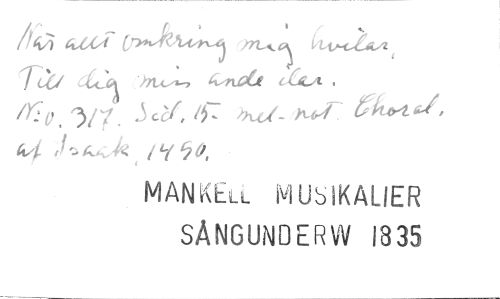 När allt omkring mig hvilar,
Till dig min ande ilar.
N:o. 317. Sid. 15- mel-not. Choral.
af Isaak, 1490.
MANKELL MUSIKALIER
SÅNGUNDERW 1835